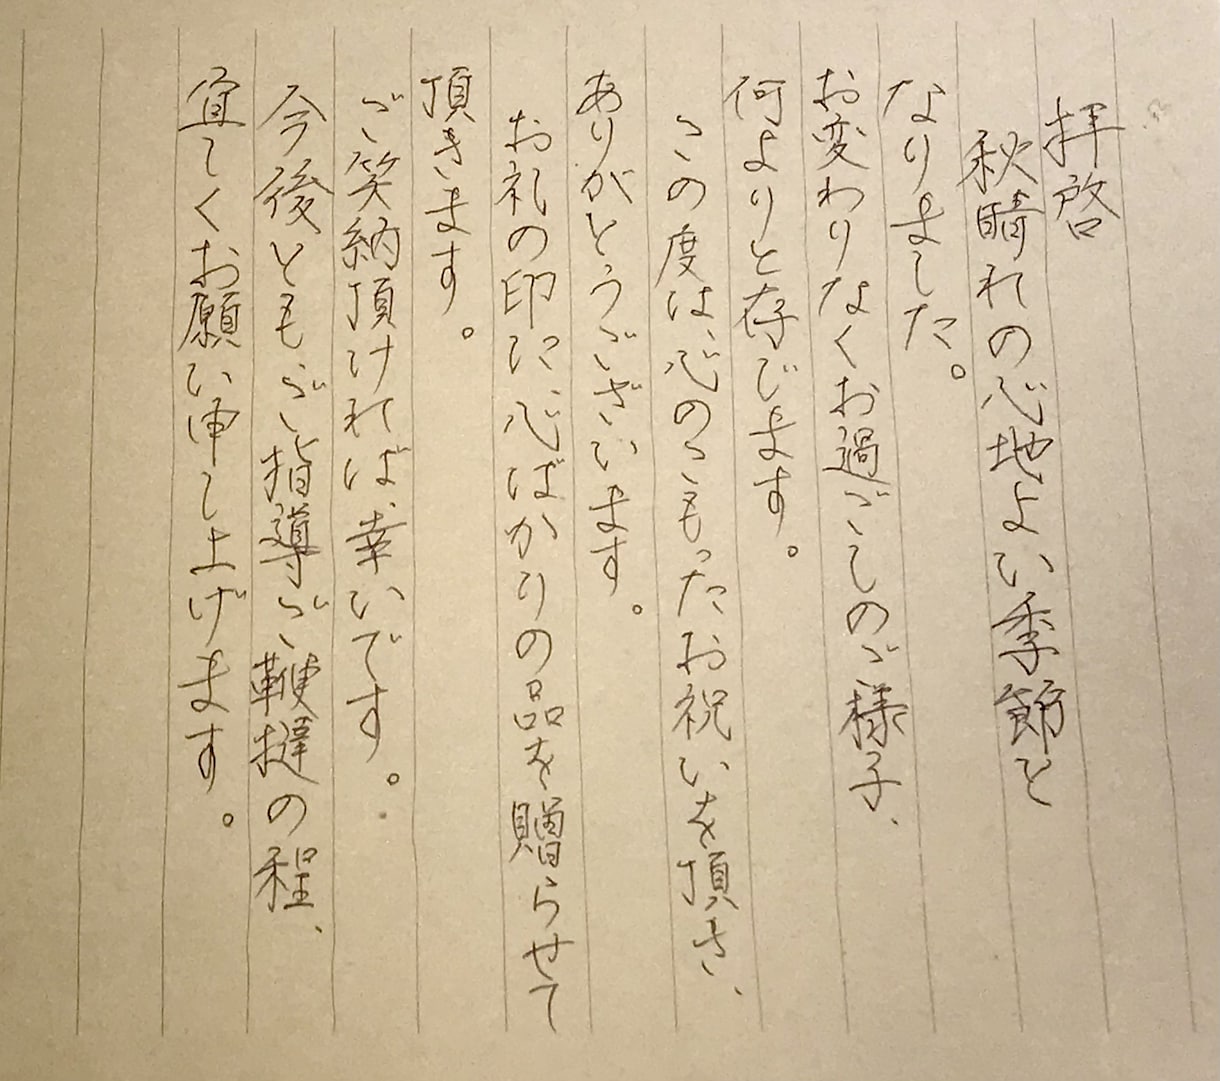 拝啓
秋晴れの心地よい季節と
なりました。
お変わりなくお過ごしのご様子、
何よりと存じます。
この度は、心のこもったお祝いを頂き、
ありがとうございます。
お礼の印に、心ばかりの品を贈らせて
頂きます。
ご笑納頂ければ、幸いです。
今後とも、ご指導ご鞭撻の程、
宜しくお願い申し上げます。